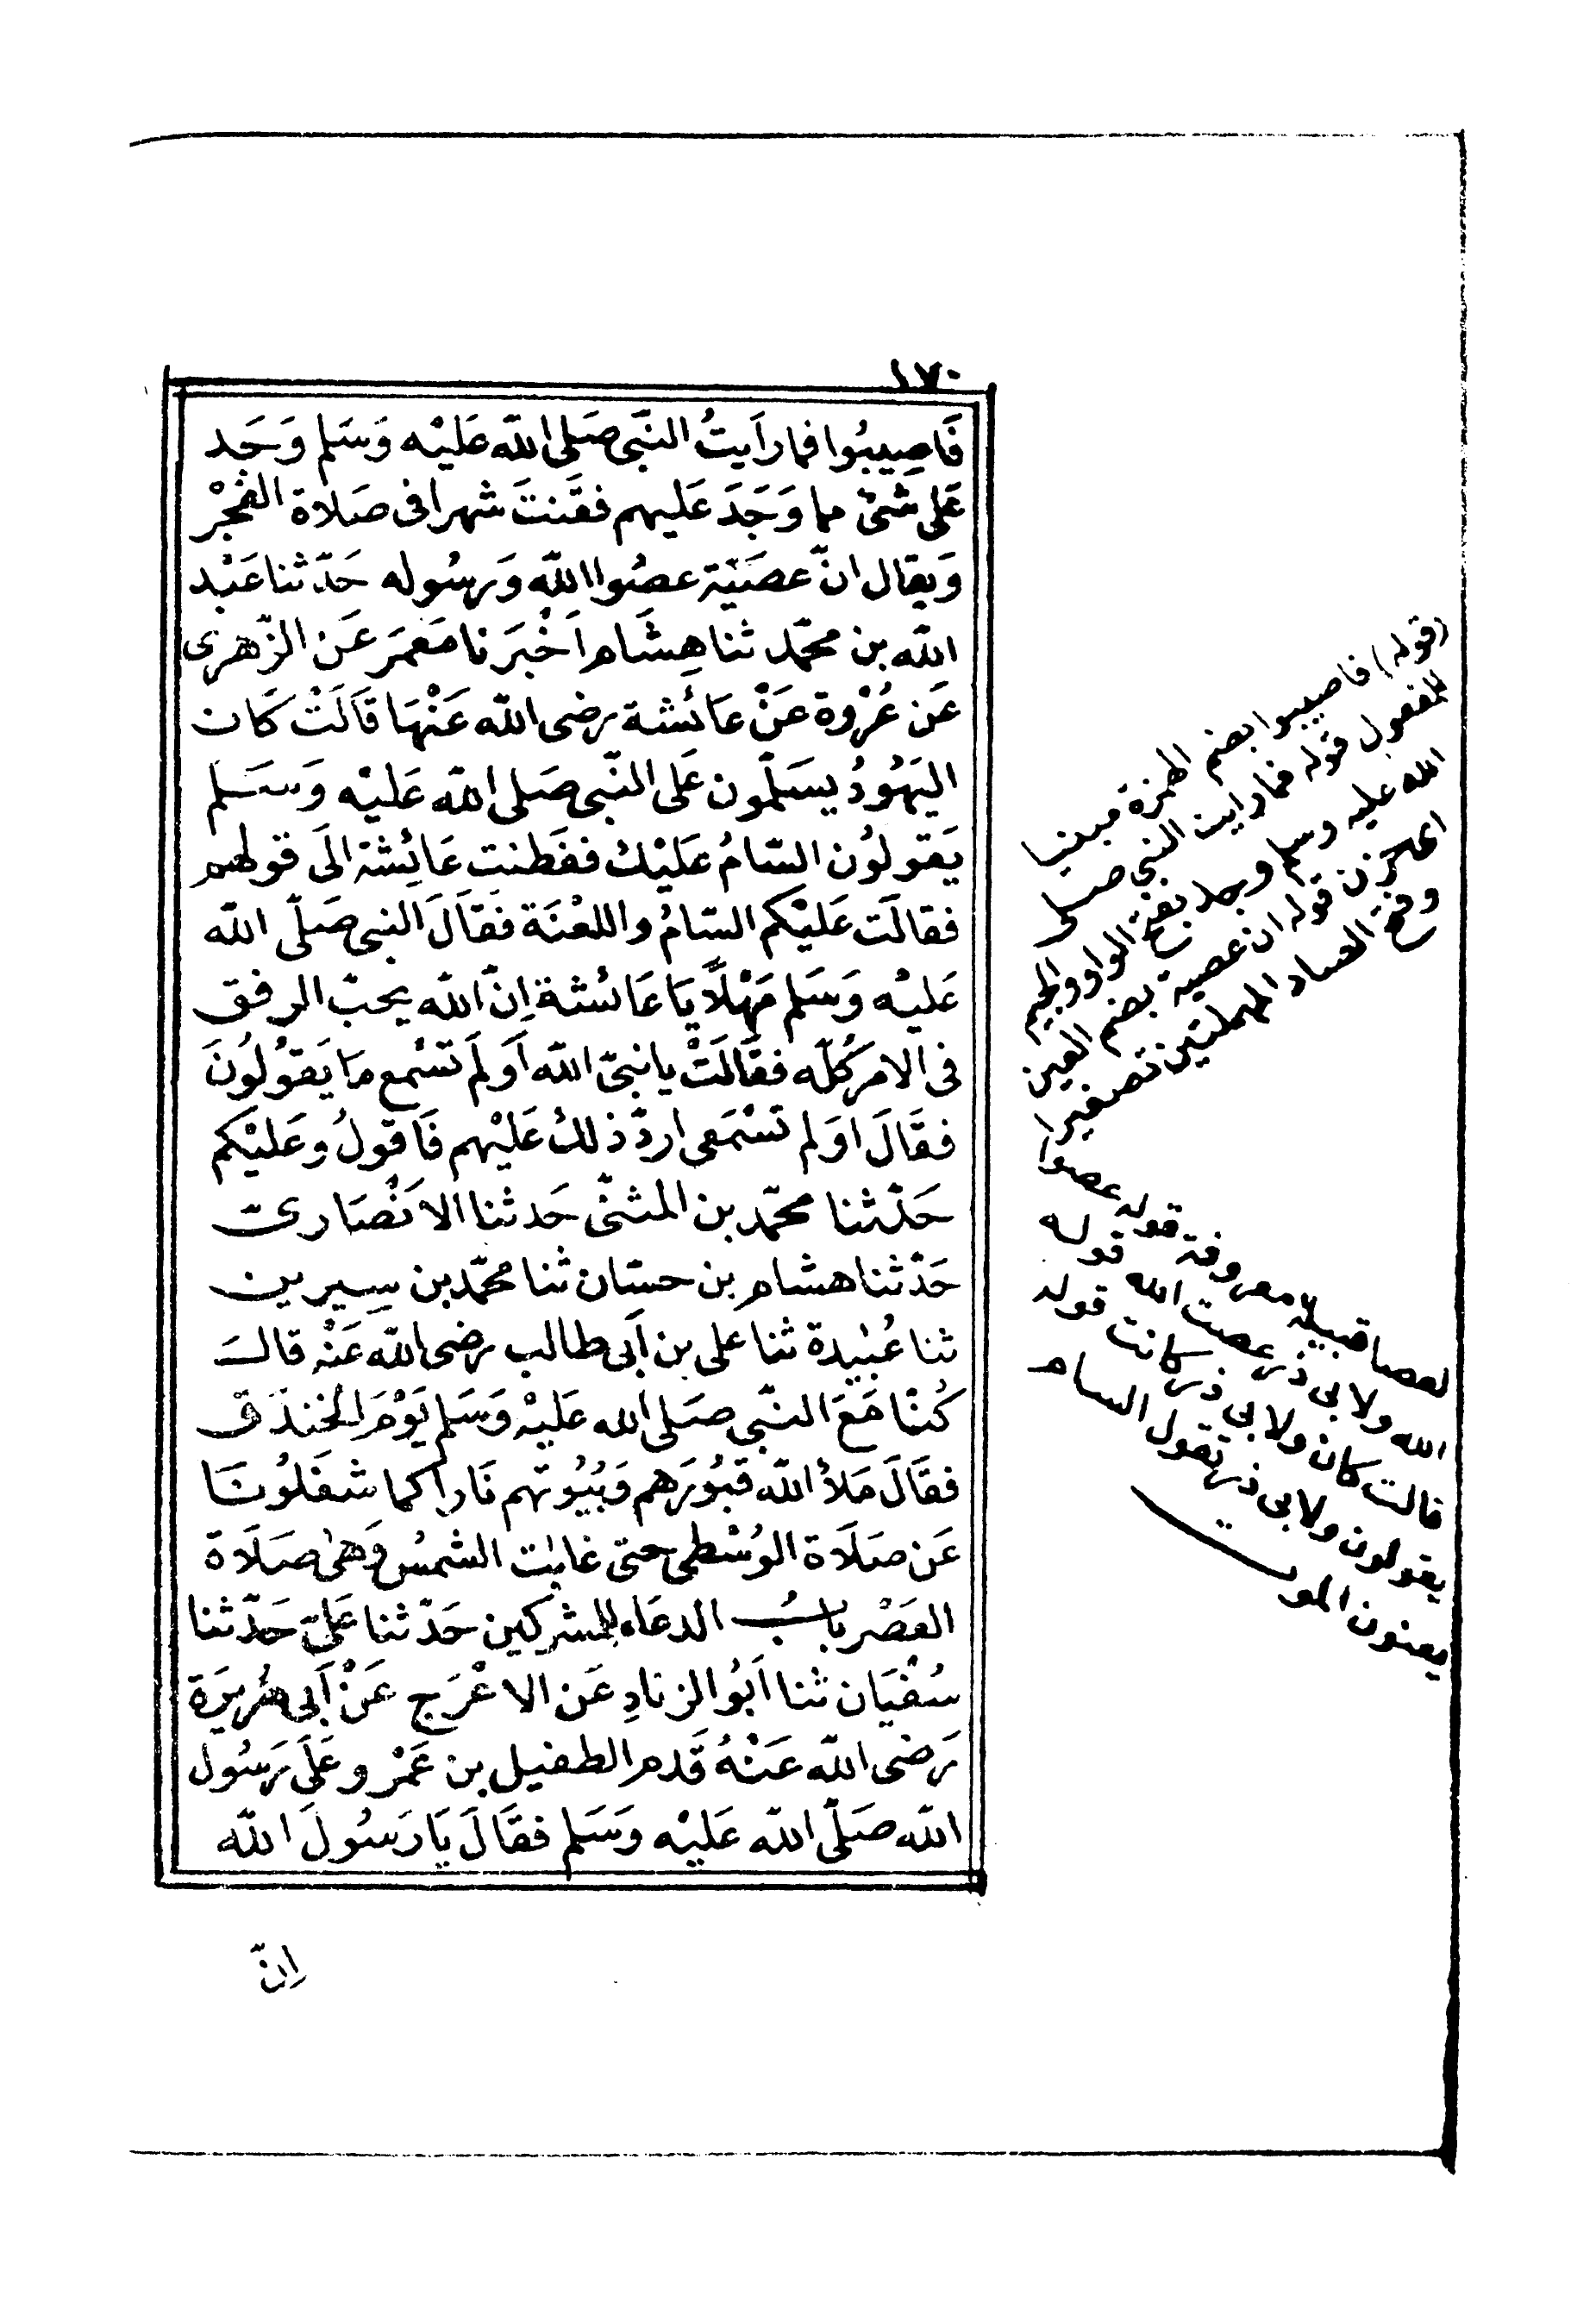 ١٧٠
فَاصِيبُوا فما رَاَيتُ النّبى صَلى الله عَليْه وَسَلم وَجَد
عَلى شئ ما وَجَدَ عَليهم فقَنتَ شهرا فى صَلاة الفجْر
وَيقال انّ عصَيّة عصُوا الله وَرسُوله حَدّثنا عَبْد
الله بن محمّد ثنا هِشَام اَخْبَرَنا مَعمَر عَن الزّهرى
عَن عُرْوة عَنْ عَائشة رضى الله عَنْهَا قَالَتْ كَان
اليَهُودُ يسَلّمون عَلى النّبى صَلى الله عَليْه وَسَلم
يَقولوُن السّامُ عَليْك ففَطنت عَائِشة الَى قولهم
فقالَت عَليْكم السّامُ واللعْنَة فَقَالَ النبى صَلّى الله
عَليْه وَسَلم مَهْلاً يَا عَائشة اِنّ الله يحبّ الرفق
فى الامر كُلّه فقَالَتْ يا نبىّ الله اَوَلَم تَسْمع مَا يَقوُلُونَ
فقَالَ اوَلم تسْمَعى اردّ ذلكُ عَليْهم فَاقولُ وعَليْكم
حَدّثنا محمّد بن المثنّى حَدثنا الانْصَارىّ
حَدّثنا هشام بن حسّان ثنا محمّد بن سِيرين
ثنا عُبَيدة ثنا على بن اَبى طالب رضى الله عَنْه قالَ
كُنّا مَعَ النّبى صَلى الله عَليْه وَسَلم يَوْمَ الخندَق
فقَالَ مَلأ الله قبُورَهم وَبُيُوتهم نَارا كما شغَلُونَا
عَن صَلاَة الوُسْطى حتى غابت الشمسُ وَهىَ صَلاَة
العَصْر بابُ الدعَاء للمشركين حَدّثنا عَلىّ حَدّثنا
سُفْيَان ثنا اَبُو الزنادِ عَن الاعْرَج عَنْ اَبى هُرَيرَة
رَضى الله عَنْهُ قَدم الطفيل بن عَمْرو عَلَى رَسُول
الله صَلّى الله عَليْه وَسَلم فقَالَ يَا رَسُولَ الله
اِنّ
(قوله) فاصيبوا بضم الهمزة مبنيا
للمفعول قوله فما رايت النبى صلى
الله عليه وسلم وجد بفتح الواو والجيم
اى حزن قوله ان عصية بضم العين
وفتح الصاد المهملتين تصغيرا
لعصا قبيلة معروفة قوله عصوا
الله ولابى ذر عصت الله قوله
قالت كان ولابى ذر كانت قوله
يقولون ولابى ذر تقول السام
يعنون الموت